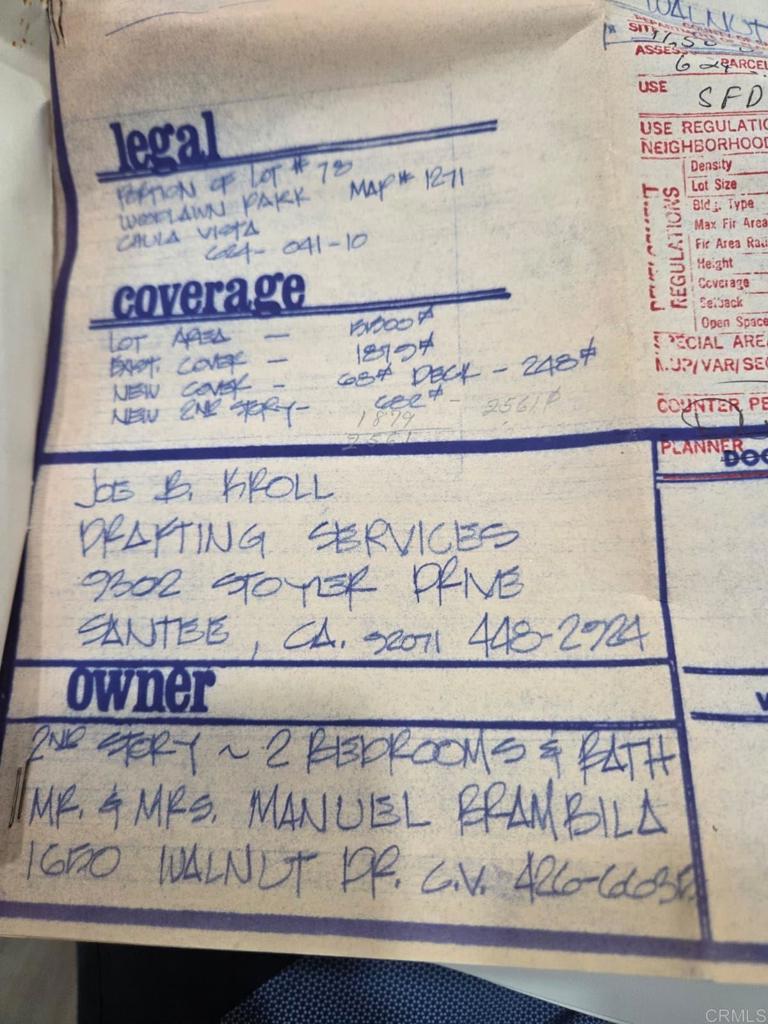 legal
PORTION OF LOT # 78
WOODLAWN PARK MAP # 1271
CHULA VISTA
624-041-10
coverage
LOT AREA —
EXIST. COVER — 1879#
NEW COVER — 68# DECK - 248#
NEW 2ND STORY - 682# - 2561#
1879
2561
JOE B. KROLL
DRAFTING SERVICES
9302 STOYER DRIVE
SANTEE, CA. 92071 448-2924
owner
2ND STORY ~ 2 BEDROOMS & BATH
MR. & MRS. MANUEL BRAMBILA
1650 WALNUT DR. C.V.
WALNUT
SIT
ASSES PARCEL
USE SFD
USE REGULATIO
NEIGHBORHOOD
DEVELOPMENT
REGULATIONS
Density
Lot Size
Bldg. Type
Max Flr Area
Flr Area Rati
Height
Coverage
Setback
Open Space
SPECIAL AREA
M.UP/VAR/SE
COUNTER PE
PLANNER
DOC
CRMLS